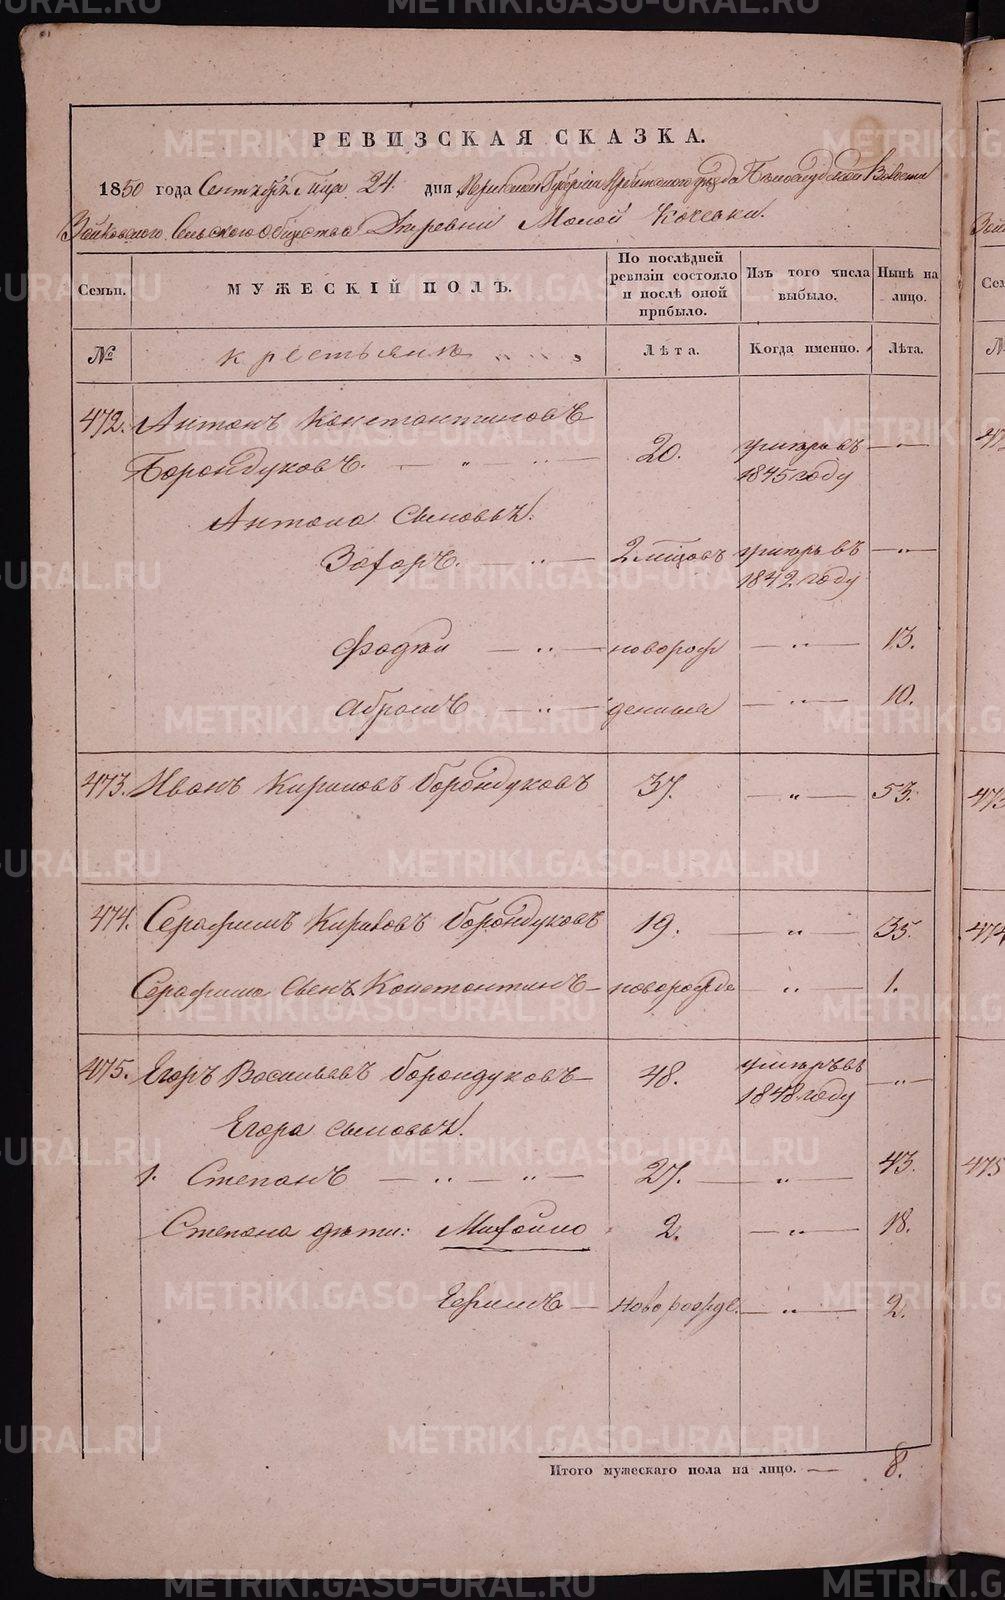 РЕВИЗСКАЯ СКАЗКА.
1850 года Сентября 24. дня Пермской Губерніи Ирбитскаго уѣзда Волости
Зайковскаго Сельскаго Общества Деревни Малой Кочевки.
Семьи. МУЖЕСКІЙ ПОЛЪ. По послѣдней ревизіи состояло и послѣ оной прибыло. Изъ того числа выбыло. Нынѣ на лицо.
№ крестьяне Лѣта. Когда именно. Лѣта.
472. Антонъ Константиновъ
Борондуковъ. — " — " — 20. умеръ въ 1845 году — " —
Антона Сыновья.
Захаръ. — " — 2 мѣсяцовъ умеръ въ 1842. году — " —
Фадѣй — " — новорож — " — 13.
Абрамъ — " — денныя — " — 10.
473. Иванъ Кириловъ Борондуковъ 37. — " — 53.
474. Серафимъ Кириловъ Борондуковъ 19. — " — 35.
Серафима Сынъ Константинъ — новорожде — " — 1.
475. Егоръ Васильевъ Борондуковъ — 48. умеръ въ 1848 году — " —
Егора сыновья.
1. Степанъ — " — " — 27. — " — 43.
Степана дѣти: Михайло 2. — " — 18.
Ефимъ — новорожде. — " — 2.
Итого мужескаго пола на лицо. — 8.
METRIKI.GASO-URAL.RU